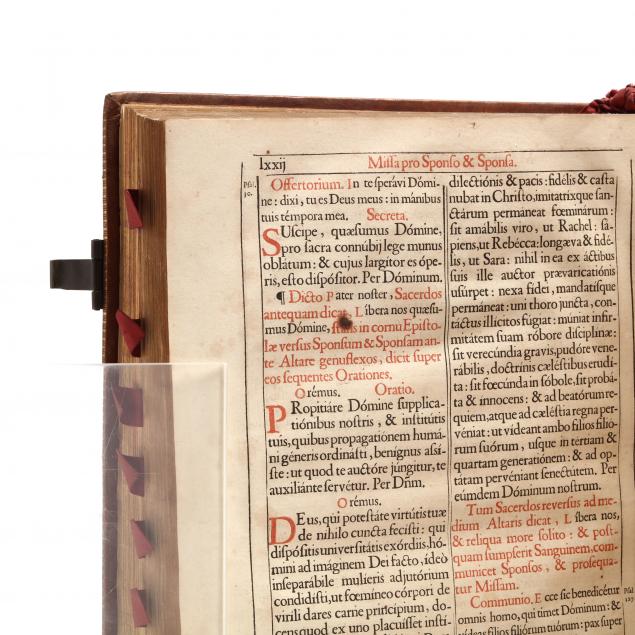 lxxij
Missa pro Sponso & Sponsa.
Psal. 30.
Offertorium. In te sperávi Dómi-
ne: dixi, tu es Deus meus: in mánibus
tuis témpora mea. Secreta.
SUscipe, quæsumus Dómine,
pro sacra connúbij lege munus
oblátum: & cujus largítor es ópe-
ris, esto dispósitor. Per Dóminum.
¶ Dicto Pater noster, Sacerdos
antequam dicat, Líbera nos quæsu-
mus Dómine, stans in cornu Episto-
læ versus Sponsum & Sponsam an-
te Altare genuflexos, dicit super
eos sequentes Orationes.
Orémus. Oratio.
PRopitiáre Dómine supplica-
tiónibus nostris, & institútis
tuis, quibus propagatiónem humá-
ni géneris ordinásti, benígnus assí-
ste: ut quod te auctóre júngitur, te
auxiliánte servétur. Per Dñm.
Orémus.
DEus, qui potestáte virtútis tuæ
de níhilo cuncta fecísti: qui
dispósitis universitátis exórdiis, hó-
mini ad imáginem Dei facto, ídeò
inseparábile mulíeris adjutórium
condidísti, ut fœmíneo córpori de
viríli dares carne princípium, do-
cens quod ex uno placuísset insti-
dilectiónis & pacis: fidélis & casta
nubat in Christo, imitatríxque san-
ctárum permáneat fœminárum:
sit amábilis viro, ut Rachel: sá-
piens, ut Rebécca: longæva & fidé-
lis, ut Sara: nihil in ea ex áctibus
suis ille auctor prævaricatiónis
usúrpet: nexa fídei, mandatísque
permáneat: uni thoro juncta, con-
táctus illícitos fúgiat: múniat infir-
mitátem suam róbore disciplínæ:
sit verecúndia gravis, pudóre vene-
rábilis, doctrínis cæléstibus erudí-
ta: sit fœcúnda in sóbole, sit probá-
ta & ínnocens: & ad beatórum ré-
quiem, atque ad cæléstia regna per-
véniat: ut vídeant ambo fílios filió-
rum suórum, usque in tértiam &
quartam generatiónem: & ad op-
tátam pervéniant senectútem. Per
eúmdem Dóminum nostrum.
Tum Sacerdos reversus ad me-
dium Altaris dicat, Líbera nos,
& reliqua more solito: & post-
quam sumpserit Sanguinem, com-
municet Sponsos, & prosequa-
tur Missam.
Communio. Ecce sic benedicétur
omnis homo, qui timet Dóminum: &
vídeas fílios filiórum tuórum: pax super
Psal. 127.